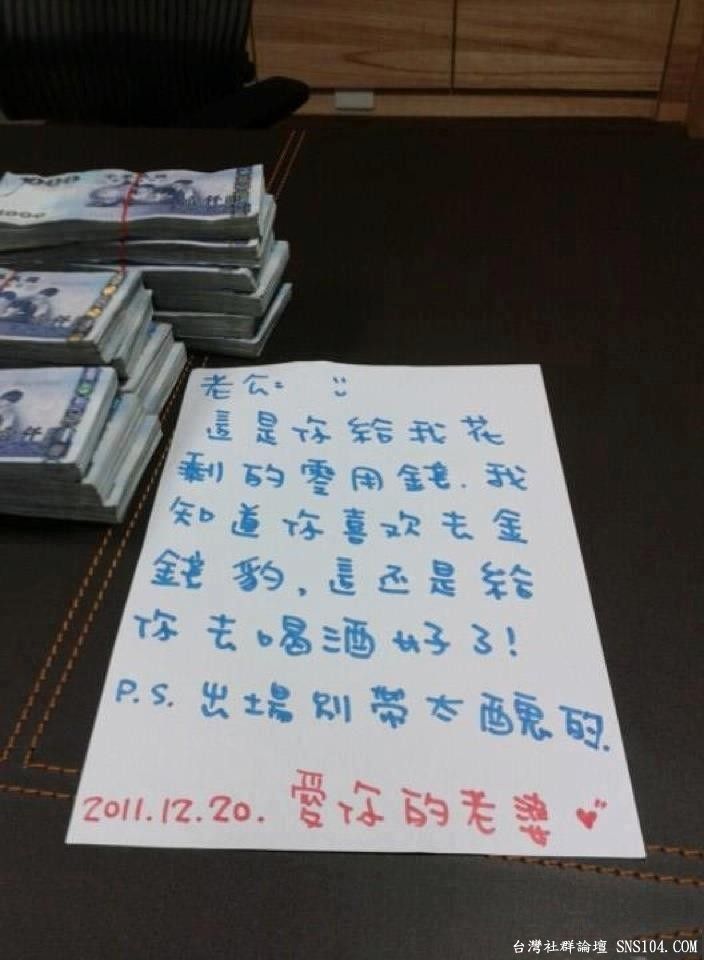 1000
1000
老公: ü
這是你給我花
剩的零用錢.我
知道你喜欢去金
錢豹,這还是給
你去喝酒好了!
P.S.出場别帶太醜的.
2011.12.20. 愛你的老婆♥
台灣社群論壇 SNS104.COM